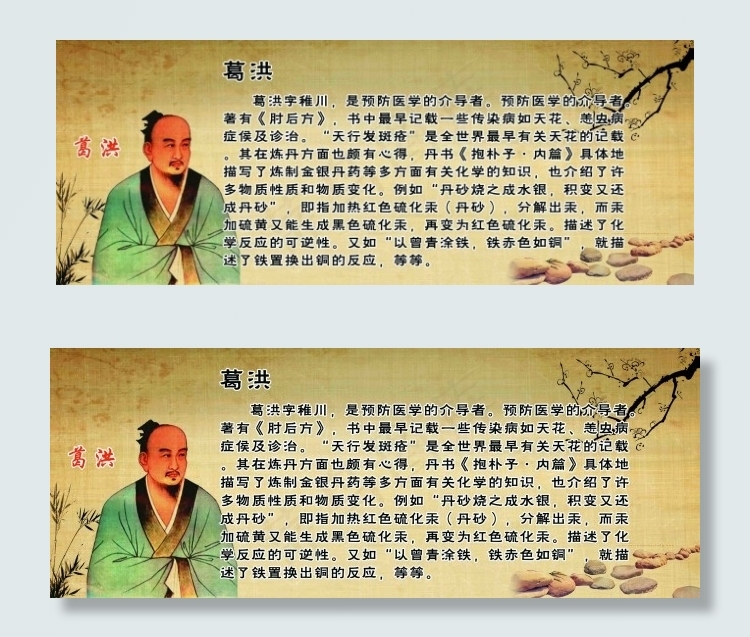 葛洪
葛洪字稚川，是预防医学的介导者。预防医学的介导者。
著有《肘后方》，书中最早记载一些传染病如天花、恙虫病
症侯及诊治。“天行发斑疮”是全世界最早有关天花的记载
。其在炼丹方面也颇有心得，丹书《抱朴子·内篇》具体地
描写了炼制金银丹药等多方面有关化学的知识，也介绍了许
多物质性质和物质变化。例如“丹砂烧之成水银，积变又还
成丹砂”，即指加热红色硫化汞（丹砂），分解出汞，而汞
加硫黄又能生成黑色硫化汞，再变为红色硫化汞。描述了化
学反应的可逆性。又如“以曾青涂铁，铁赤色如铜”，就描
述了铁置换出铜的反应，等等。
葛洪
葛洪
葛洪字稚川，是预防医学的介导者。预防医学的介导者。
著有《肘后方》，书中最早记载一些传染病如天花、恙虫病
症侯及诊治。“天行发斑疮”是全世界最早有关天花的记载
。其在炼丹方面也颇有心得，丹书《抱朴子·内篇》具体地
描写了炼制金银丹药等多方面有关化学的知识，也介绍了许
多物质性质和物质变化。例如“丹砂烧之成水银，积变又还
成丹砂”，即指加热红色硫化汞（丹砂），分解出汞，而汞
加硫黄又能生成黑色硫化汞，再变为红色硫化汞。描述了化
学反应的可逆性。又如“以曾青涂铁，铁赤色如铜”，就描
述了铁置换出铜的反应，等等。
葛洪